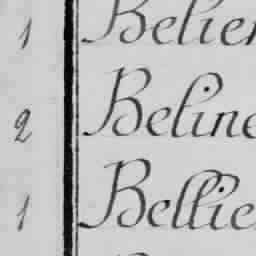 1 Belier
2 Beline
1 Bellie